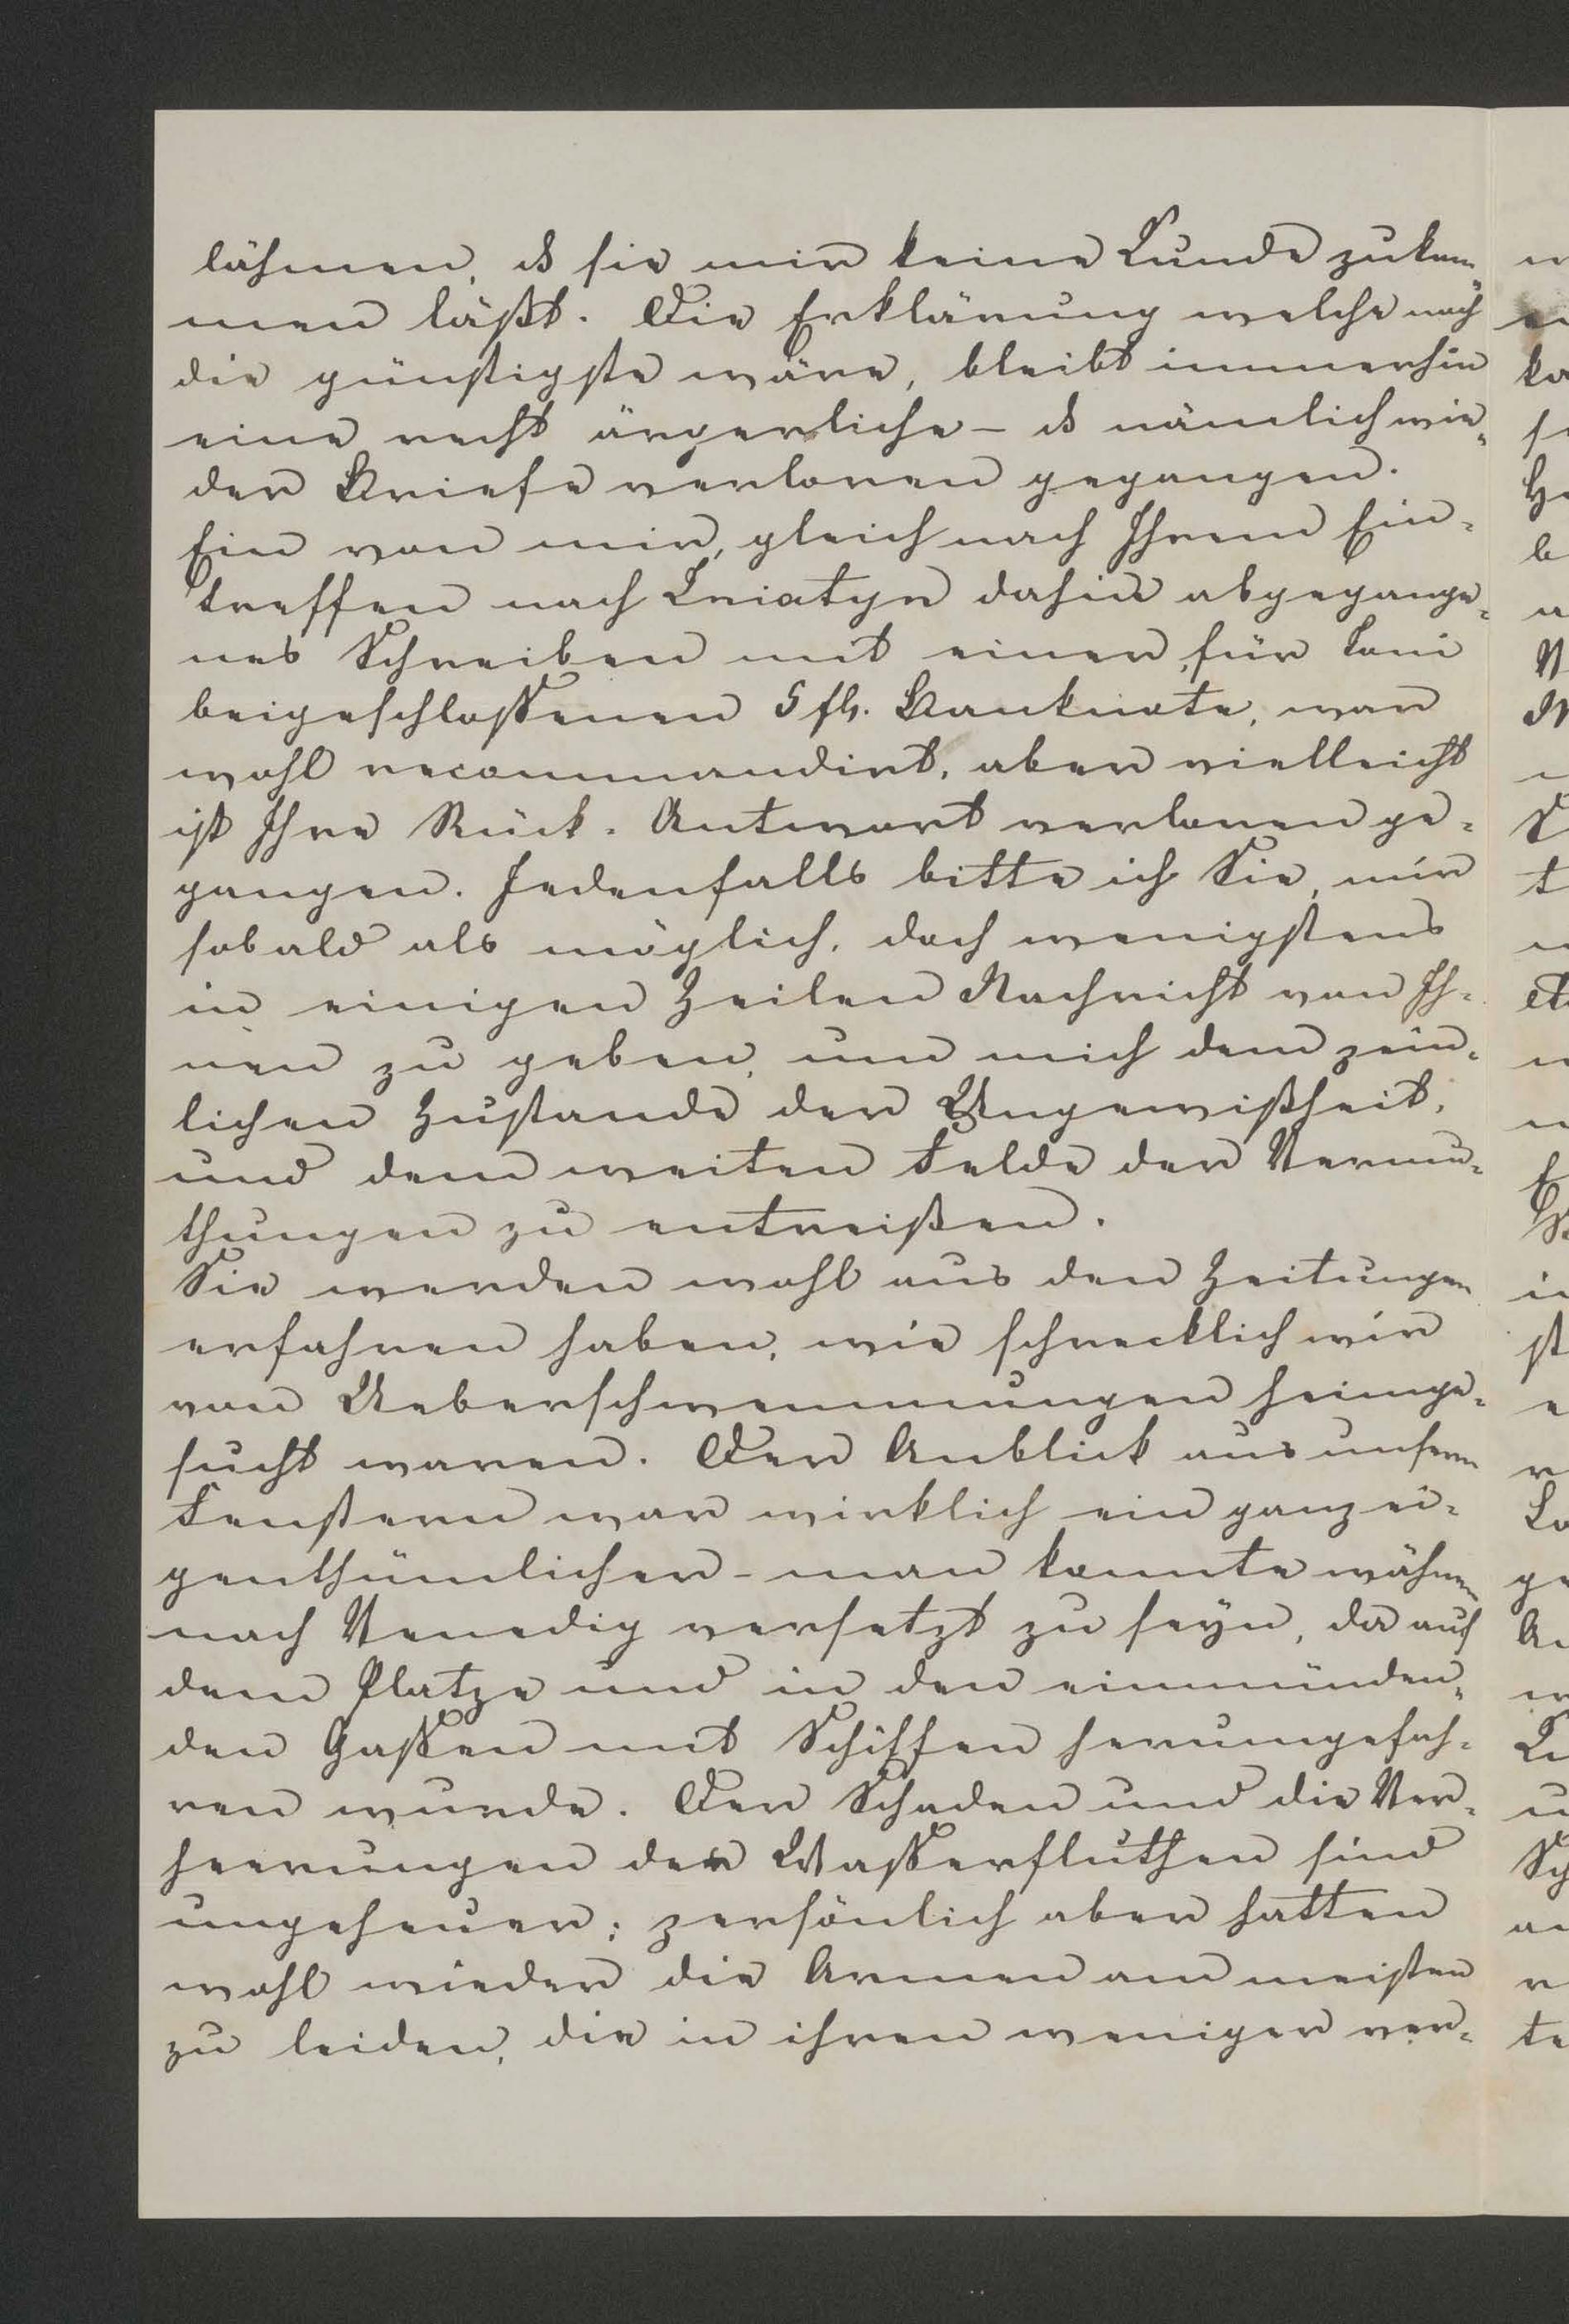 lähmen, ds sie mir keine Kunde zukom„
men läßt. Die Erklärung welche noch
die günstigste wäre, bleibt immerhin
eine recht ärgerliche – ds nämlich wie„
der Briefe verloren gegangen.
Ein von mir, gleich nach Ihrem Ein=
treffen nach Sniatyn dahin abgegange„
nes Schreiben mit einer, für Toni
beigeschlossenen 5 fl. Banknote, war
wohl recommandirt, aber vielleicht
ist Ihre Rück=Antwort verloren ge=
gangen. Jedenfalls bitte ich Sie, mir
sobald als möglich, doch wenigstens
in einigen Zeilen Nachricht von Ih=
nen zu geben, um mich dem pein=
lichen Zustande der Ungewißheit,
und dem weiten Felde der Vermu=
thungen zu entreißen.
Sie werden wohl aus den Zeitungen
erfahren haben, wie schrecklich wir
von Ueberschwemmungen heimge=
sucht waren. Der Anblick aus unsern
Fenstern war wirklich ein ganz ei=
genthümlicher – man konnte wähnen
nach Venedig versetzt zu seyn, da auf
dem Platze und in den einmünden„
den Gassen mit Schiffen herumgefah=
ren wurde. Der Schaden und die Ver=
heerungen der Wasserfluthen sind
ungeheuer; persönlich aber hatten
wohl wieder die Armen am meisten
zu leiden, die in ihren weniger ver=